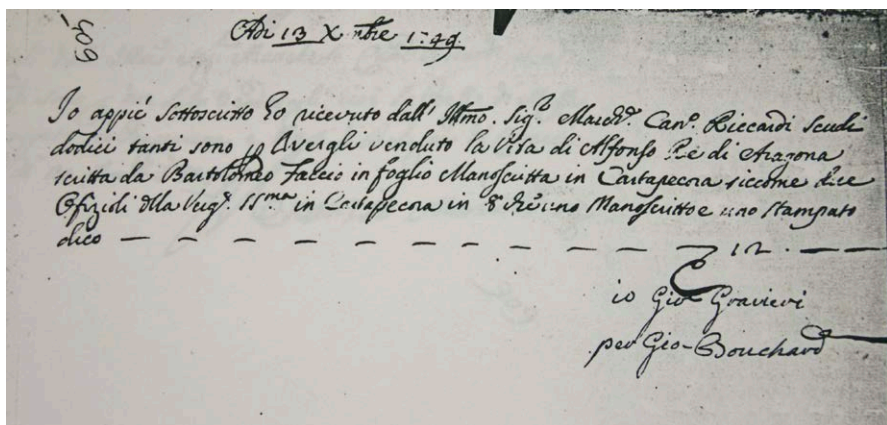 609
Adi 13 Xmbre 1749.
Io appiè Sottoscritto ho ricevuto dall' Illmo. Sig.e March.e Can.o Riccardi Scudi
dodici tanti sono p Avergli venduto la Vita di Alfonso Re di Aragona
scritta da Bartolomeo Faccio in foglio Manoscritta in Cartapecora siccome due
Ofizioli della Verg.e SS.ma in Cartapecora in 8 uno Manoscritto e uno stampato
dico — — — — — — — — — — 12. —
io Gio Gravieri
per Gio-Bouchard